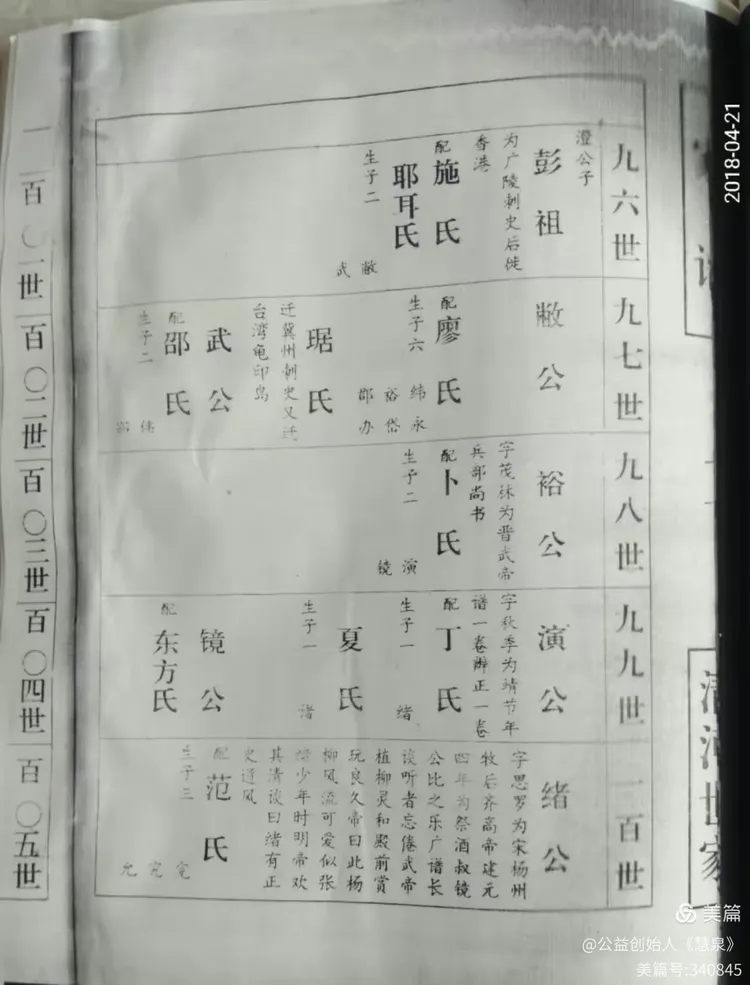 九六世
澄公子
彭祖
为广陵刺史后徙
香港
配
施氏
耶耳氏
生子二
敝
武
九七世
敝公
配
廖氏
生子六
纬永
裕岱
郡办
琚氏
迁冀州刺史又迁
台湾龟印岛
武公
配
邵氏
生子二
九八世
裕公
字茂秝为晋武帝
兵部尚书
配
卜氏
生子二
演
镜
九九世
演公
字秋季为靖节年
谱一卷辨正一卷
配
丁氏
生子一
绪
夏氏
生子一
渚
镜公
配
东方氏
一百世
绪公
字思罗为宋杨州
牧后齐高帝建元
四年为祭酒叔镜
公比之乐广谱长
谈听者忘倦武帝
植柳灵和殿前赏
玩良久帝曰此杨
柳风流可爱似张
绪少年时明帝欢
其清谈曰绪有正
史道风
配
范氏
生子三
完
允
一百〇一世
百〇二世
百〇三世
百〇四世
百〇五世
清河世家
2018-04-21
美篇
@公益创始人《慧泉》
美篇号:340845